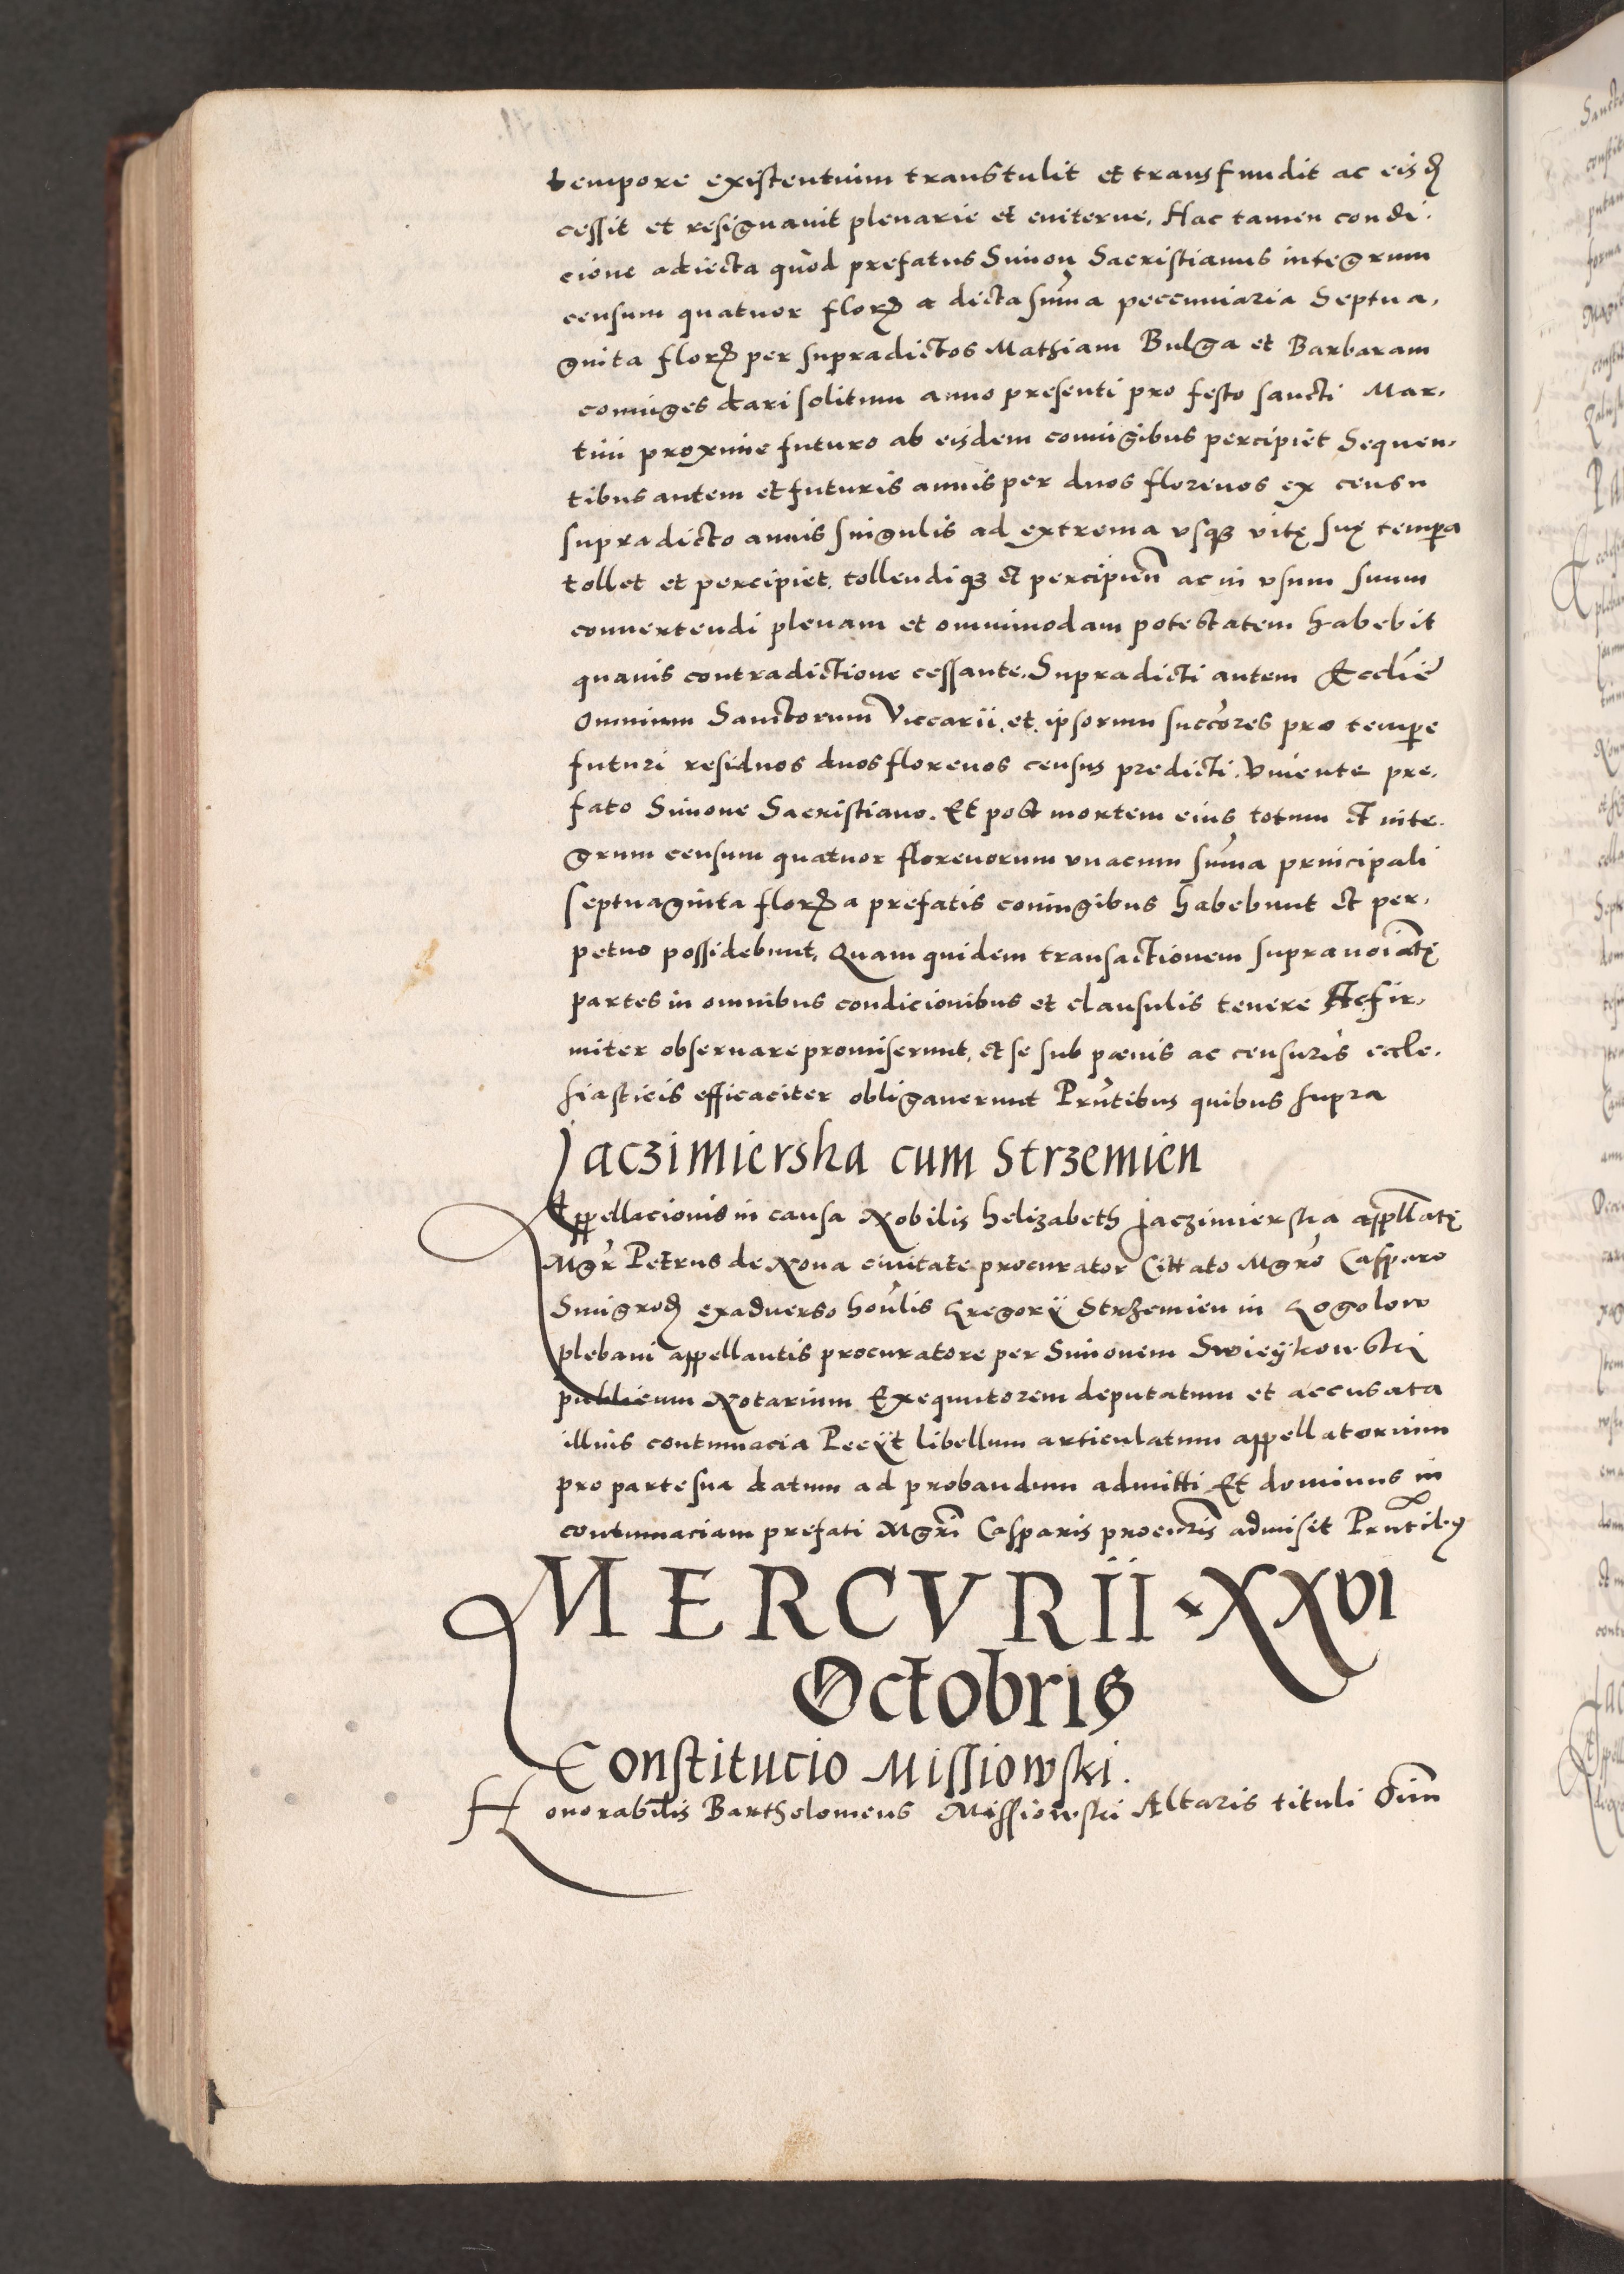 tempore existentuim transtulit et transfundit ac eisđ
cessit et resignavit plenarie et eviterne. Hac tamen condi.
cione adiecta quòd prefatus Simon Sacristianus integrum
censum quatuor florꝝ a dicta sum̃a peccuniaria Septua.
ginta florꝝ per supradictos Mathiam Bulga et Barbaram
coniuges dari solitum anno presenti pro festo sancti Mar.
tini proxime futuro ab eisdem coniugibus percipiet Sequen.
tibus autem et futuris annis per duos florenos ex censu
supradicto annis singulis ad extrema vsqꝫ vitę suę temp̱a
tollet et percipiet. tollendiqꝫ et percipien̄ ac in vsum suum
convertendi plenam et omnimodam potestatem habebit
quavis contradictione cessante. Supradicti autem Eccl̃ie
Omnium Sanctorum Viccarii et ipsorum succ̃ores pro temp̱e
futuri residuos duos florenos census predicti. Viuente pre.
fato Simone Sacristiano. Et post mortem eius totum et inte.
grum censum quatuor florenorum vnacum sum̃a principali
septuaginta florꝝ a prefatis coniugibus habebunt et per.
petuo possidebunt. Quam quidem transactionem supranoia͞tę
partes in omnibus condicionibus et clausulis tenere Ac fir.
miter observare promiserunt, et se sub pœnis ac censuris eccle.
siasticis efficaciter obligaverunt Prñtibus quibus supra
Jaczimierska cum Strzemien
Appellacionis in causa Nobilis helizabeth Jaczimierska app̱ll̃atę
Mgr̃ Petrus de Nova civitate procurator Cittato Mgrõ Casparo
Smigrođ exadverso hon̄lis Gregorÿ Strzemien in Gogolow
plebani appellantis procuratore per Simonem Swieykowski
publicum Notarium Exequutorem deputatum et accusata
illius contumacia Peeÿt libellum articulatum appellatorium
pro parte sua datum ad probandum admitti Et dominus in
contumaciam prefati Mgrĩ Casparis procur̃is admisit Prñtibꝰ
MERCVRII XXVI
Octobris
Constitucio Missiowski.
Honorabilis Bartholomeus Missiowski Altaris tituli Oīm